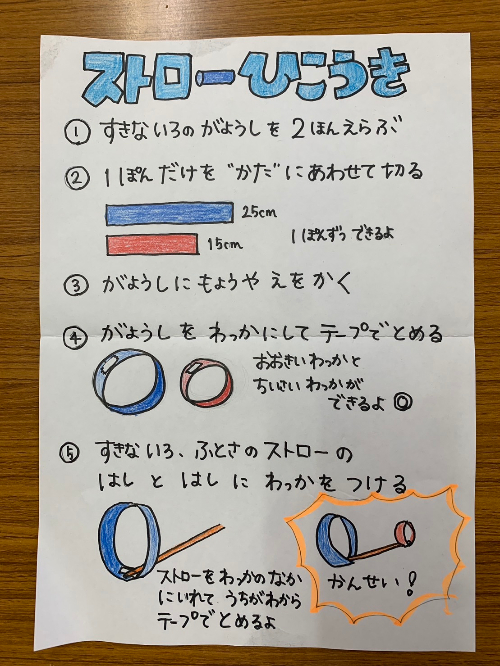 ストローひこうき
① すきないろの がようしを 2ほんえらぶ
② 1ぽんだけを "かた"にあわせて切る
25cm
15cm
1ぽんずつ できるよ
③ がようしに もようや えを かく
④ がようしを わっかにして テープでとめる
おおきいわっかと
ちいさい わっかが
できるよ ◎
⑤ すきないろ、ふとさの ストローの
はしと はしに わっかを つける
ストローを わっかの なか
にいれて うちがわから
テープでとめるよ
かんせい!